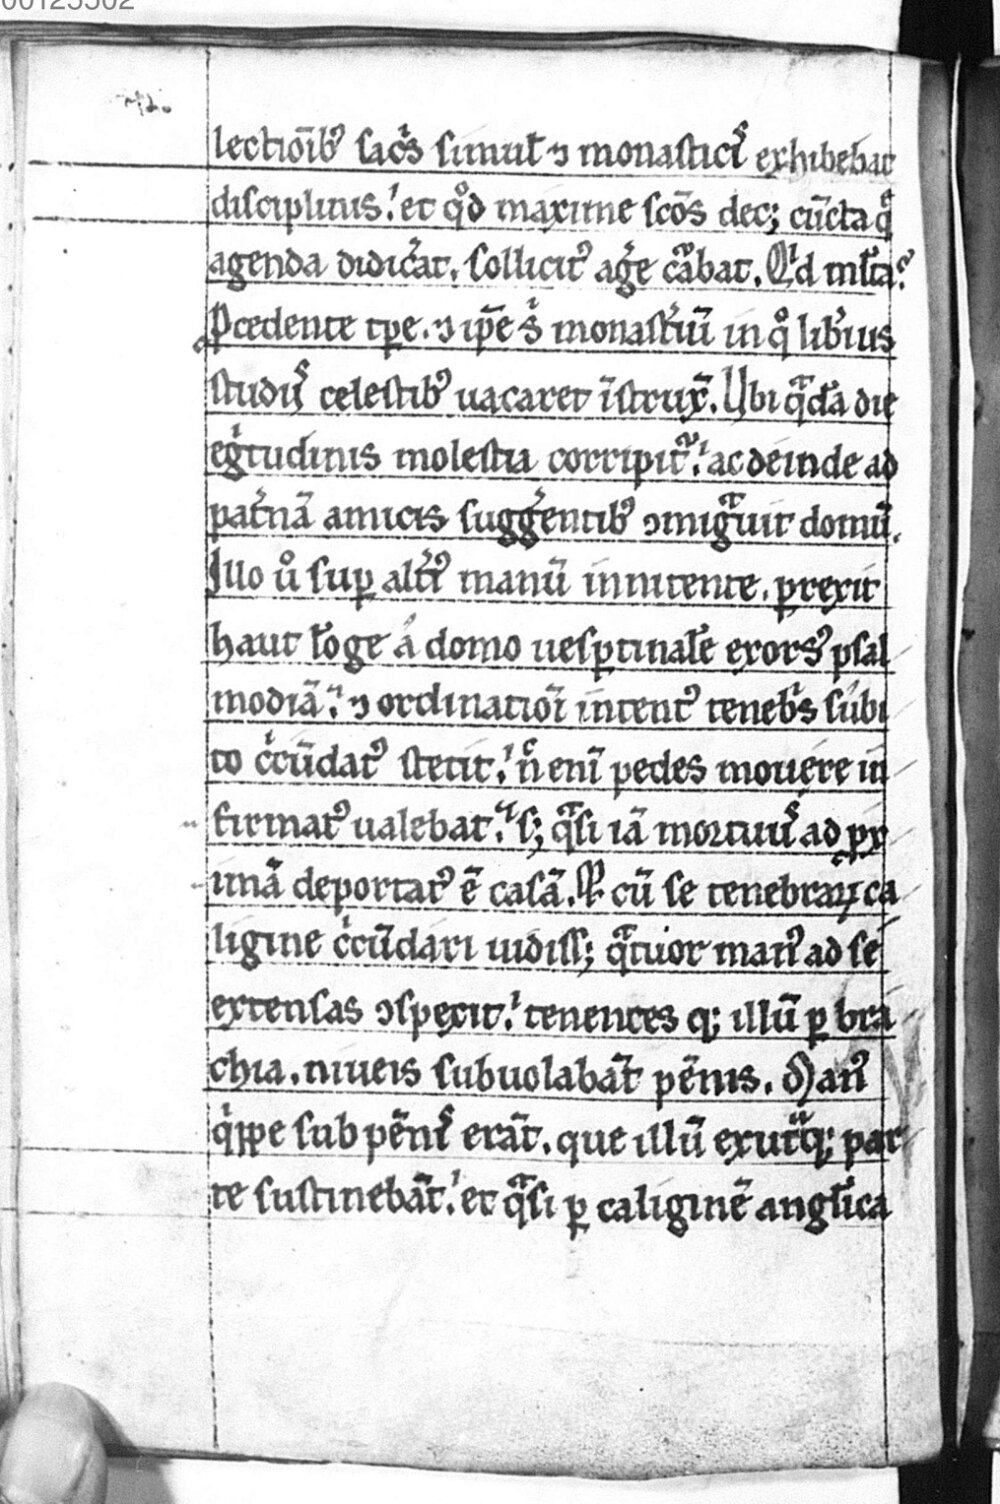 lectioīb⁹ sac̾s simul̵ ⁊ monasticꝭ exhibebat
disciplinis. et qͦd maxime scōs dec; cūcta qͣ
agenda didic̾at. sollicit⁹ ag̾e cᷓabat. Qͥd ml̵ta?
P̱cedente tp̱e. ⁊ ip̄e sͥ monast̾iū in qͦ lib̾ius
studiꝭ celestib⁹ uacaret īstrux̄. Ubi qᷓdā die
egͥtudinis molestia corripit᷑. ac deinde ad
pat̾nā amicis sugg̾entib⁹ ꝯmigᷓuit domū.
Illo uͦ suꝑ alt̾i⁹ manū innitente. ꝑrexit
haut lōge á domo uesꝑtinal̵e exors⁹ psal
modiā. ⁊ ordinatioī intent⁹ teneb̾s súbi
to cͥcūdat⁹ stetit. n̄ enī pedes mouére in
firmat⁹ ualebat. s; qᷓsi iā mortuuꝭ ad px
imā deportat⁹ ē casā. cū se tenebraꝝ ca
ligine cͥcūdari uidiss; qᷓtuor man⁹ ad se
extensas ꝯspexit. tenentes q; illū ꝑ bra
chia. niueis subuolabāt pēnis. Man⁹
qͥppe sub pēnꝭ erāt. que illū exutᷓq; par
te sustinebāt. et qᷓsi ꝑ caliginē angl̵ica